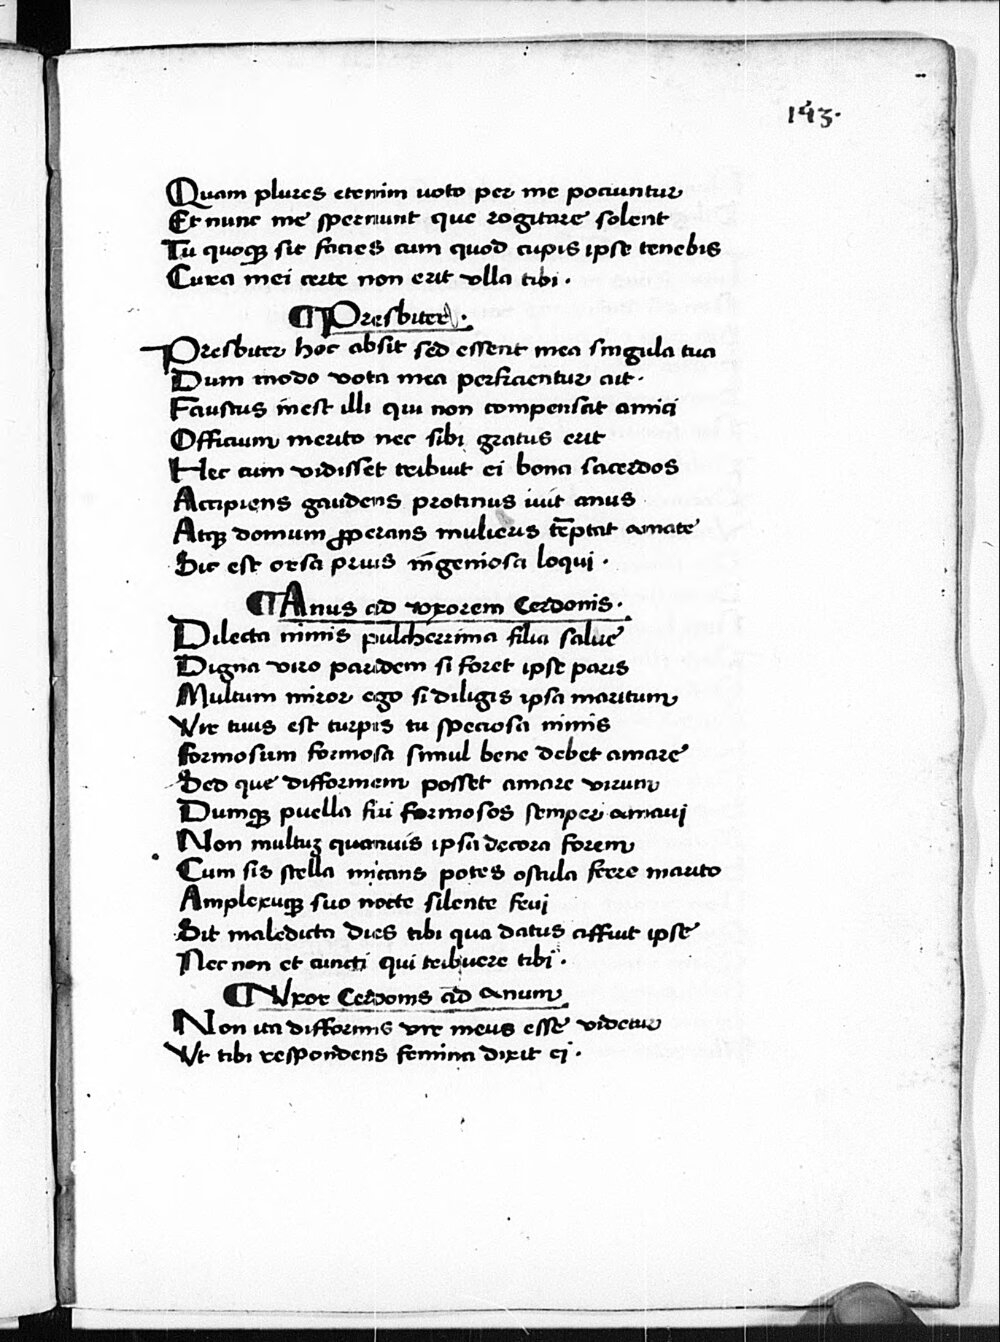 143.
Quam plures etenim uoto per me pociuntur
Et nunc me spernunt que rogitare solent
Tu quoqꝫ sic facies cum quod cupis ipse tenebis
Cura mei certe non erit vlla tibi .
¶ Presbiter .
Presbiter hoc absit sed essent mea singula tua
Dum modo vota mea perficientur ait .
Faustus inest illi qui non compensat amici
Officium merito nec sibi gratus erit
Hec cum vidisset tribuit ei bona sacerdos
Accipiens gaudens protinus iuit anus
Atqꝫ domum ꝓperans mulieris tēptat amate
Sic est orsa prius ingeniosa loqui .
¶ Anus ad vxorem Cerdonis .
Dilecta nimis pulcherrima filia salue
Digna viro paridem si foret ipse paris
Multum miror ego si diligis ipsa maritum
Vir tuus est turpis tu speciosa nimis
Formosum formosa simul bene debet amare
Sed que difformem posset amare virum
Dumqꝫ puella fui formosos semper amaui
Non multuꝫ quamuis ipsa decora forem
Cum sis stella micans potes oscula ferre marito
Amplexuqꝫ suo nocte silente feui
Sit maledicta dies tibi qua datus affuit ipse
Nec non et cuncti qui tribuere tibi .
¶ Vxor Cerdonis ad anum
Non ita difformis vir meus esse videtur
Vt tibi respondens femina dixit ei .